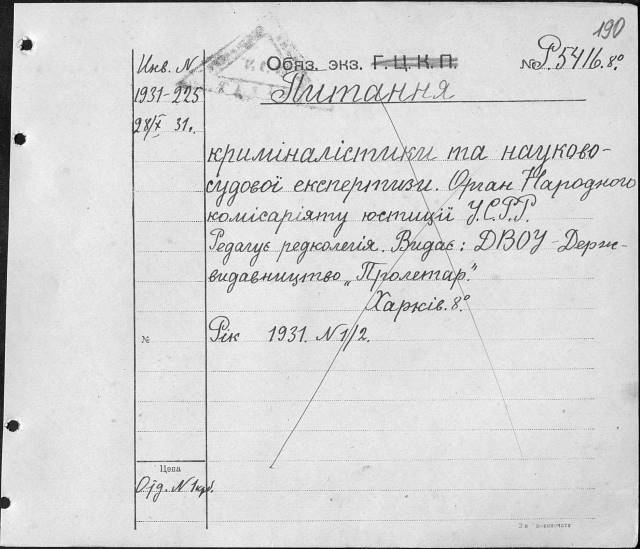 190
Инв. N
1931-225
28/X 31г.
Обяз. экз. Г.Ц.К.П.
№ Р5416.8º
Питання
криміналістики та науково-
судової експертизи. Орган Народного
комісаріяту юстиції У.С.Р.Р.
Редагує редколегія. Видає: ДВОУ-Держ-
видавництво „Пролетар."
Харків. 8º.
№
Рік 1931. N 1/2.
Цена
N 1крб.